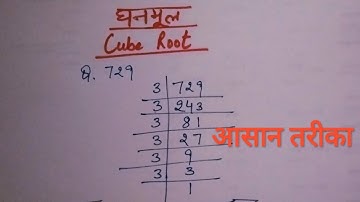 घनमूल
Cube Root
प्र. 729
3 729
3 243
3 81
3 27
3 9
3 3
1
आसान तरीका